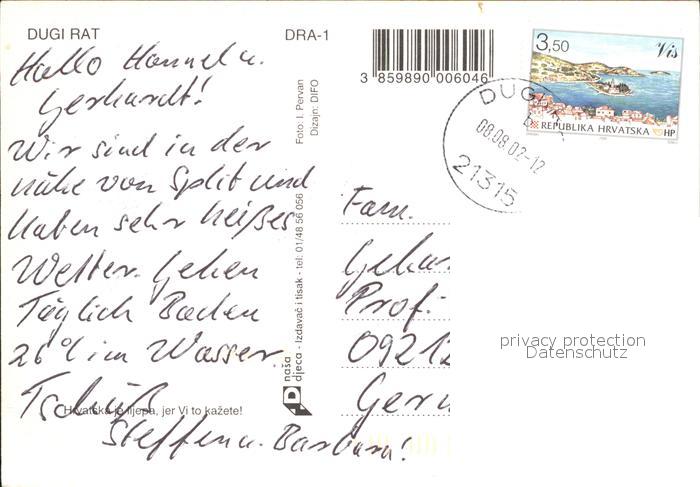 DUGI RAT
DRA-1
Hallo Hannel u.
Gerhardt!
Wir sind in der
nähe von Split und
haben sehr heißes
Wetter. Gehen
Täglich Baden
26°C im Wasser.
Tschüß
Hrvatska je lijepa, jer Vi to kažete!
Steffen u. Barbara!
Foto: I. Pervan
Dizajn: DIFO
naša
djeca - Izdavač i tisak - tel: 01/48 56 056
3 859890 006046
3,50
Vis
REPUBLIKA HRVATSKA HP
DUGI
08.08.02-12
21315
Fam.
Prof.
0921
privacy protection
Datenschutz